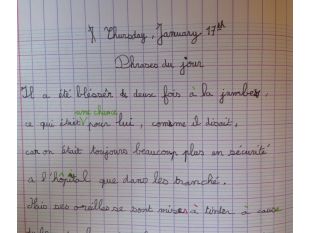 Thursday, January 17th
Phrases du jour
Il a été blessér à deux fois à la jambes,
une chance
ce qui était pour lui, comme il disait,
car on était toujours beaucoup plus en sécurité
a l'hôpital que dans les tranché.
Mais ses oreilles se sont mises à tinter à cause